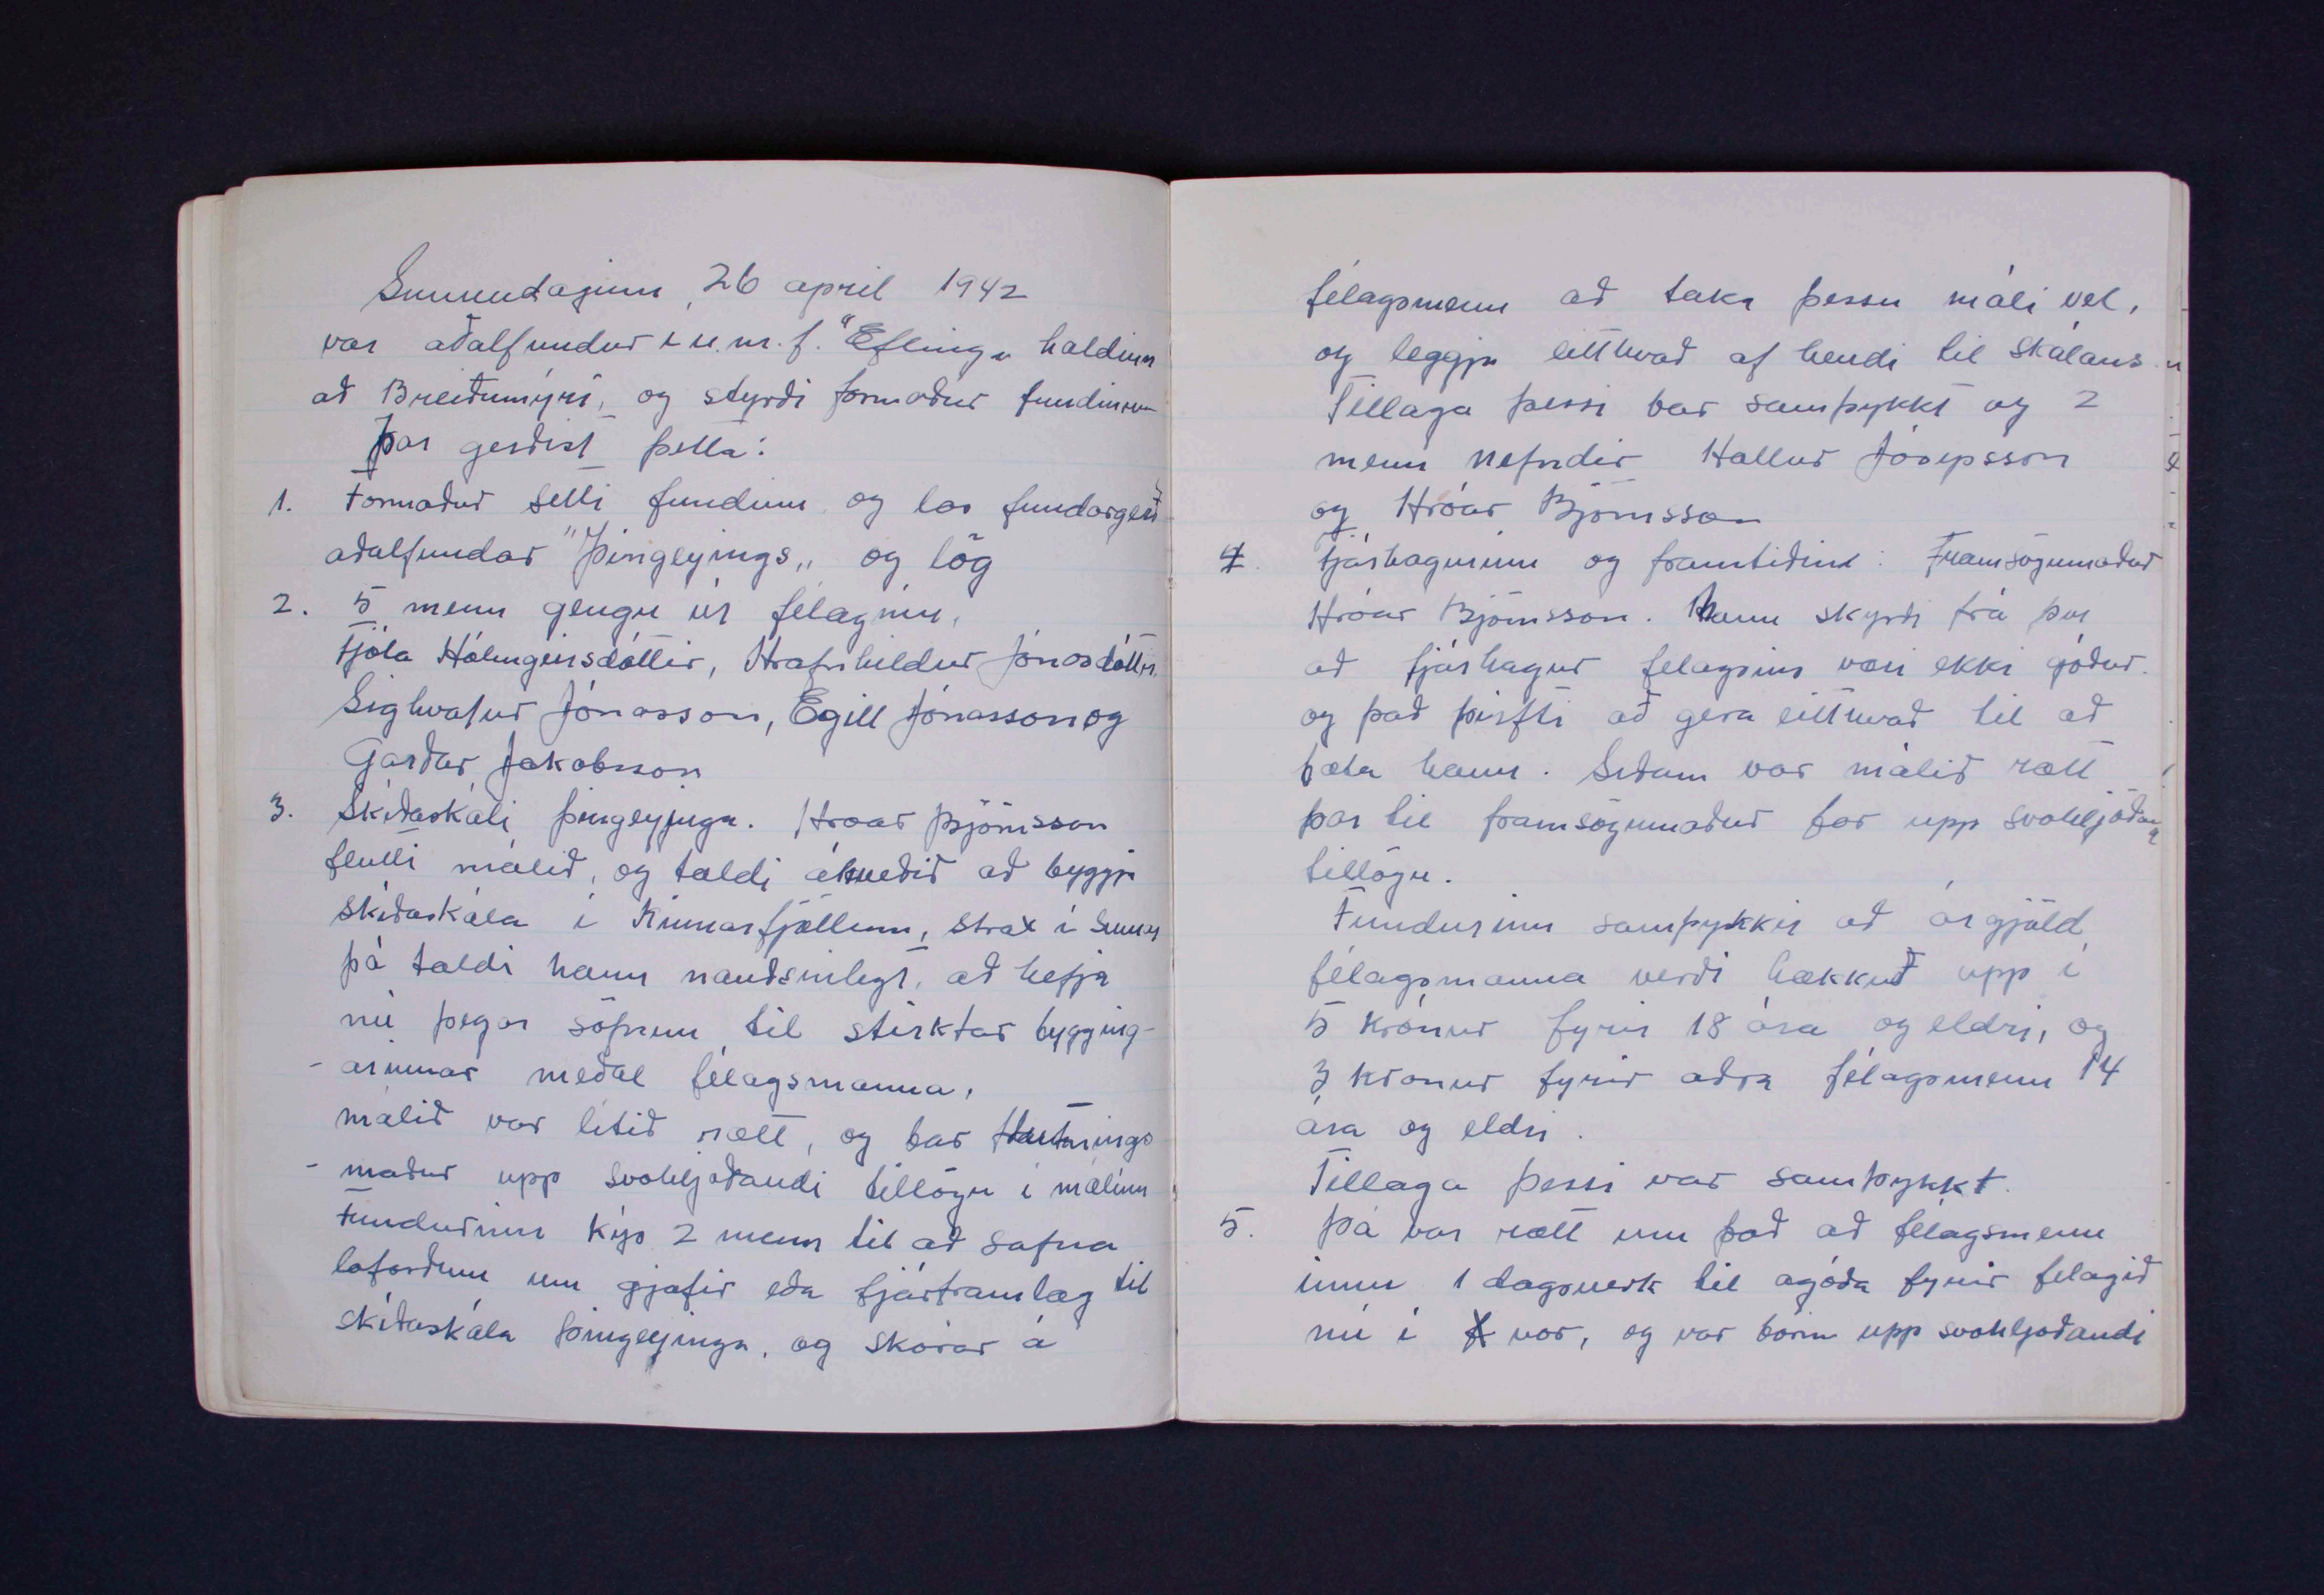 Sunnudaginn 26 april 1942
var aðalfundur í u.m.f. "Eflingu haldinn
að Breiðumýri, og styrði formaður fundinum
Þar gerðist þetta:
1. Formaður setti fundinn og las fundargerð
aðalfundar "Þingeyings„ og lög
2. 5 menn gengu úr félaginu,
Fjóla Hólmgeirsdóttir, Hrafnhildur Jónasdóttir,
Sighvatur Jónasson, Egill Jónasson og
Garðar Jakobsson
3. Skíðaskáli þingeyjinga. Hróar Björnsson
flutti málið, og taldi ákveðið að byggja
skíðaskála í Kinnarfjöllum, strax í sumar
þá taldi hann nauðsinlegt, að hefja
nú þegar söfnun til stirktar bygging-
- arinnar meðal félagsmanna,
málið var lítið rætt, og bar flutnings
- maður upp svohljoðandi tillögu í málinu
Fundurinn kýs 2 menn til að safna
loforðum um gjafir eða fjárframlag til
skíðaskála þingeyjinga, og skorar á
félagsmenn að taka þessu máli vel,
og leggja eitthvað af hendi til skálans
Tillaga þessi var samþykkt og 2
menn nefndir Hallur Jósepsson
og Hróar Björnsson
4. Fjárhagurinn og framtiðin: Framsögumaður
Hróar Björnsson. Hann skyrði frá því
að fjárhagur felagsins væri ekki góður.
og það þirfti að gera eitthvað til að
bæta hann. Siðann var málið rætt
þar til framsögumaður bar upp svohljóðandi
tillögu.
Fundurinn samþykkir að árgjöld
félagsmanna verði hækkuð upp í
5 krónur fyrir 18 ára og eldri, og
3 kronur fyrir aðra félagsmenn 14
ára og eldri.
Tillaga þessi var samþykkt.
5. Þá var rætt um það að félagsmenn
innu 1 dagsverk til agóða fyrir felagið
nú í vor, og var borin upp svohljoðandi